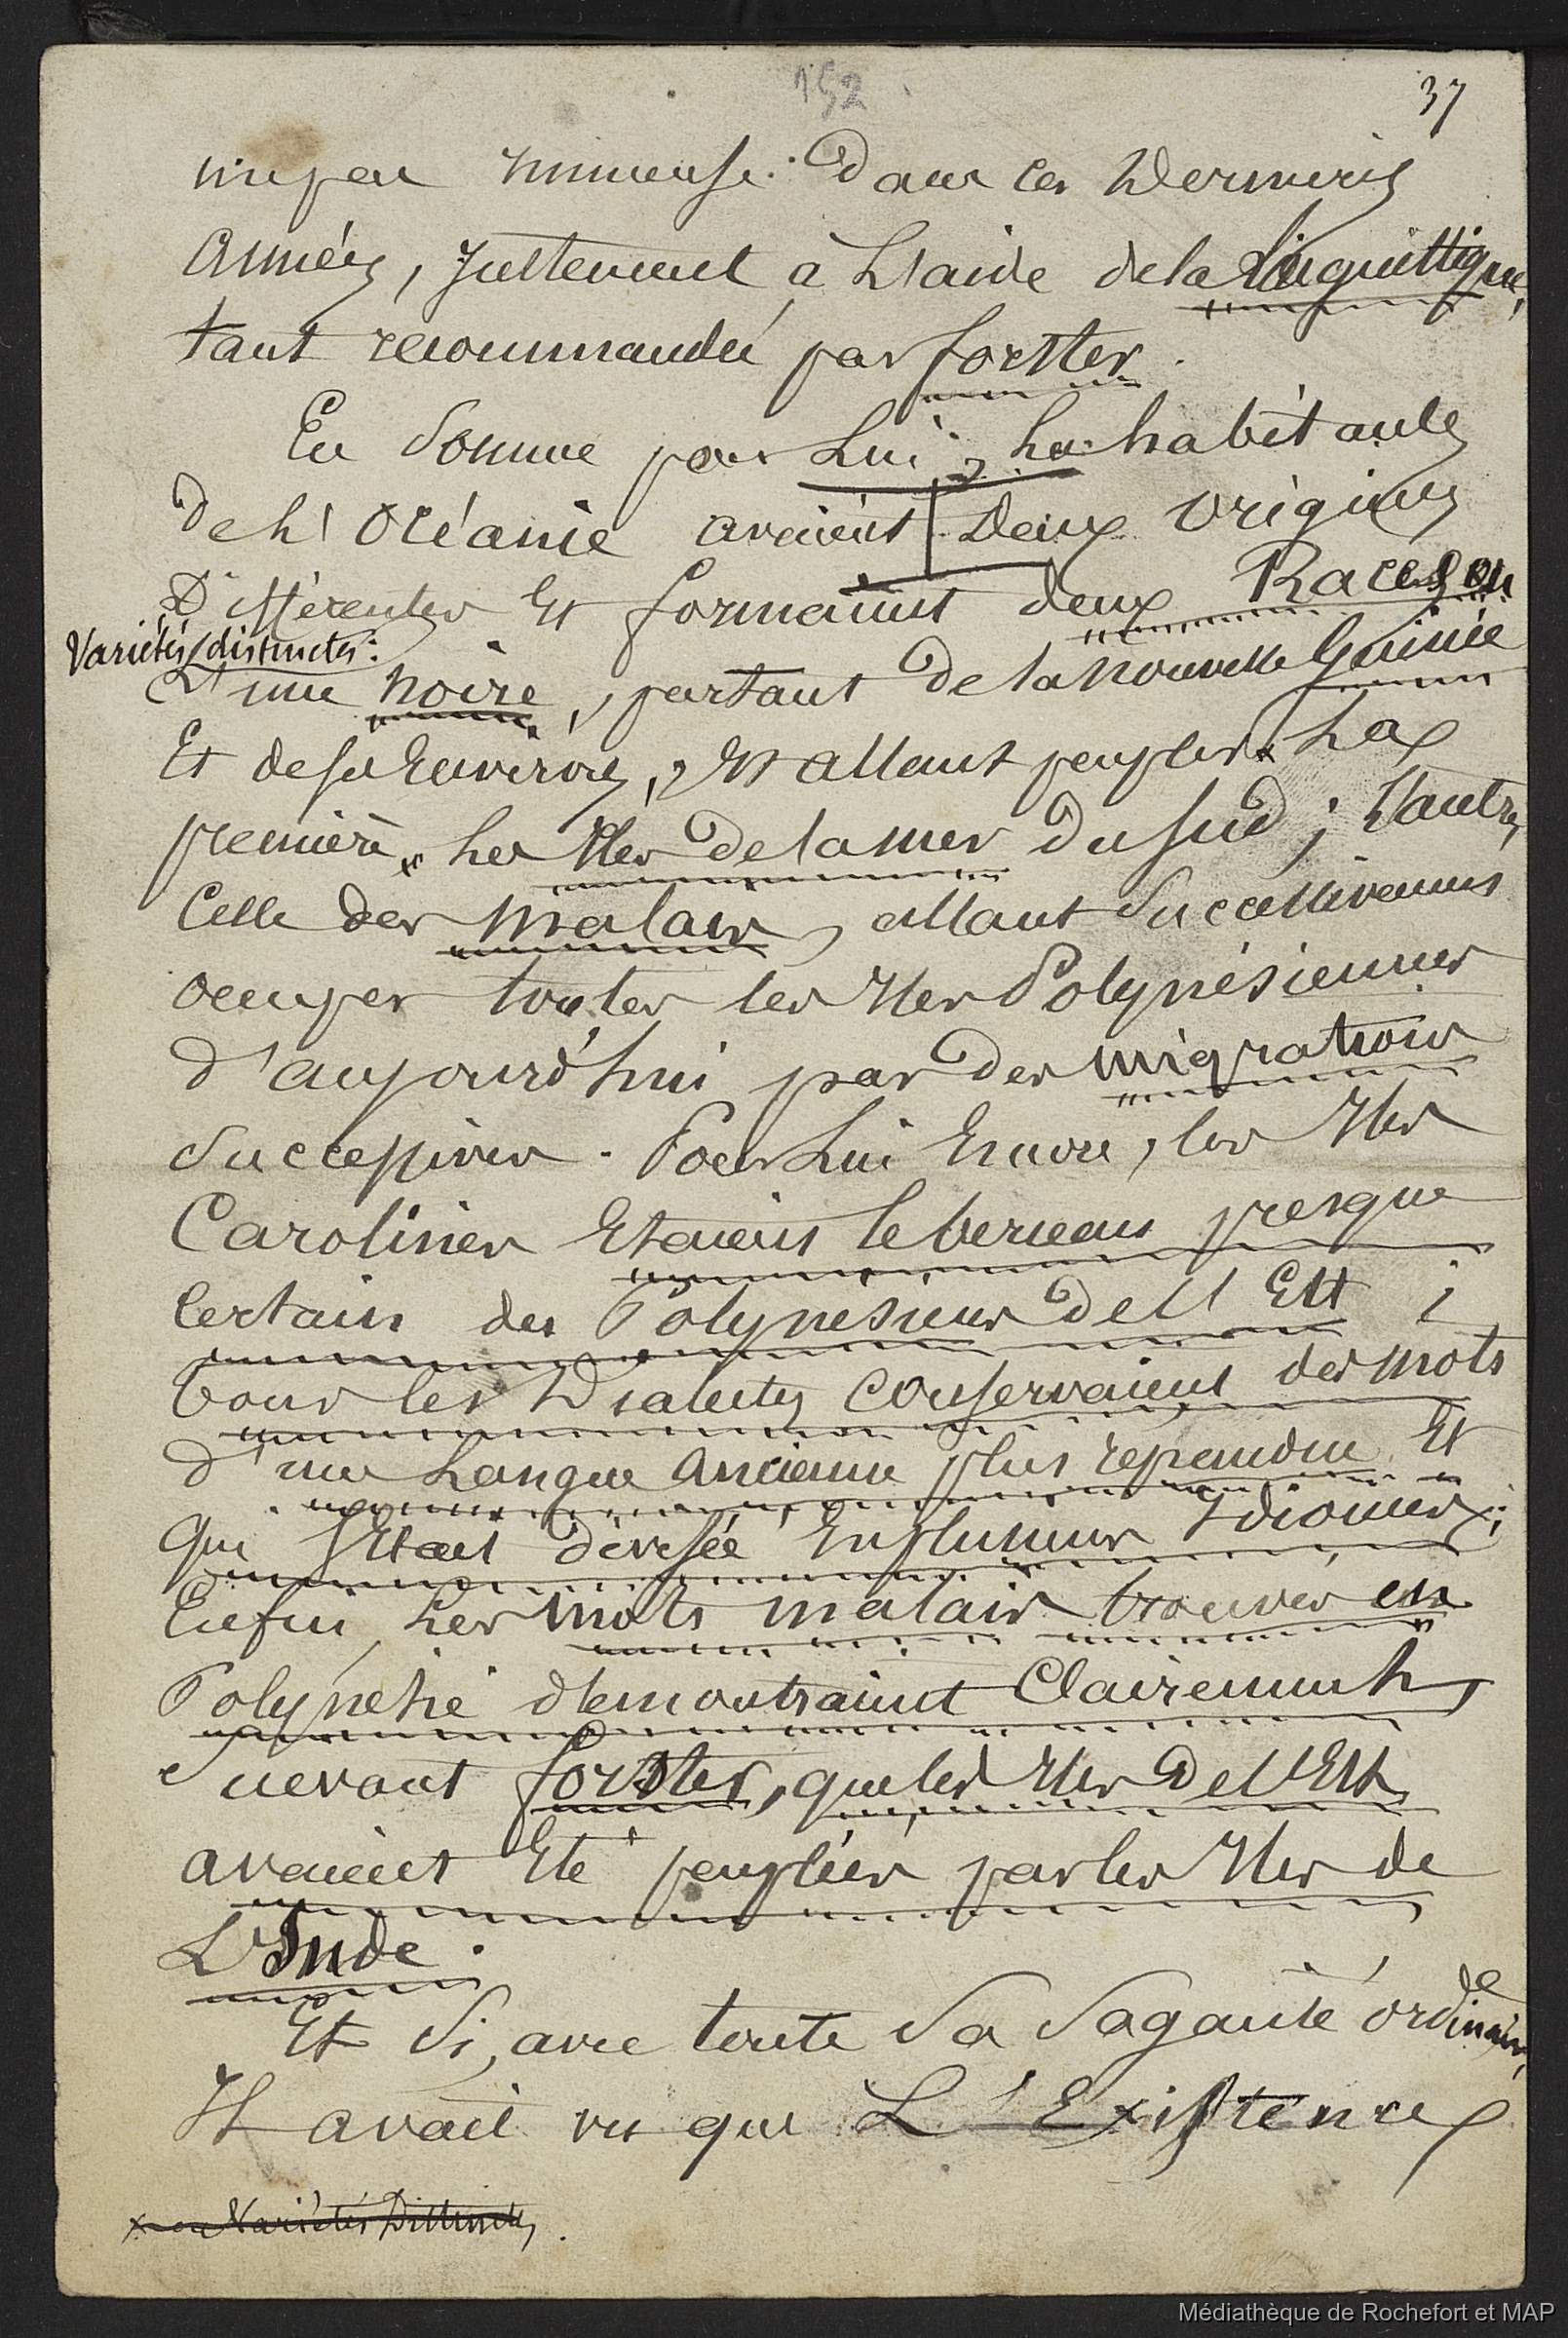 152
37
un peu immense. Dans ces Dernières
Années, Justement à L'aide de la Linguistique,
tant recommandée par forster.
En Somme pour Lui, Les habitants
De L'Océanie avaient Deux Origines
Différentes Et formaient deux Races ou
Variétés distinctes:
L'une noire, partant De la Nouvelle Guinée
Et de ses Environs, Et allant peupler La
première Les Iles De la mer Du Sud; L'autre,
Celle des Malais, allant Successivement
occuper toutes les Iles Polynésiennes
d'aujourd'hui par Des migrations
Successives. Pour Lui Encore, les Iles
Carolines Etaient le berceau presque
Certain des Polynésiens De l'Est;
tous les Dialectes conservaient des mots
d'une Langue Ancienne plus répandue Et
qui S'Etait divisée En plusieurs Idiomes;
Enfin Les mots malais trouvés en
Polynésie démontraient Clairement,
Suivant forster, que les Iles De l'Est
avaient Eté peuplées par les Iles de
L'Inde.
Et Si, avec toute Sa Sagacité ordinaire,
de
Il avait vu que L'Existence
x ou Variétés Distinctes.
Médiathèque de Rochefort et MAP